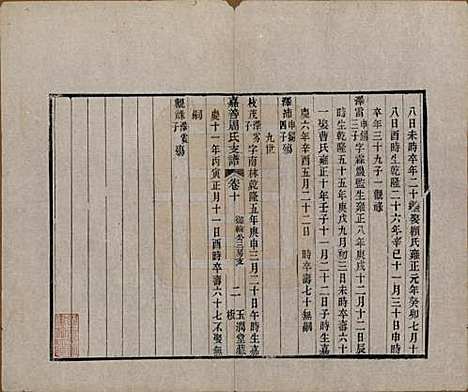 八日未時卒年二十 娶顧氏雍正元年癸卯七月十
八日酉時生乾隆二十六年辛巳十一月三十日申時
卒年三十九子一觀 
澤霖 申錫子 字霖 監生雍正八年庚戌十二月十二日辰
時生乾隆五十五年庚戌九月初三日未時卒壽六十
一娶曹氏雍正十年壬子十一月二十二日子時生嘉
慶六年辛酉五月二十二日 時卒壽七十無嗣
澤沛 申錫四子 殤
九世
枝茂 澤雱子 字南林乾隆五年庚申三月二十日午時生嘉
嘉善周氏支譜 卷十 二 板 玉潤堂藏
慶十一年丙寅正月十一日酉時卒壽六十七不娶無
嗣
觀誅 澤霱子 殤